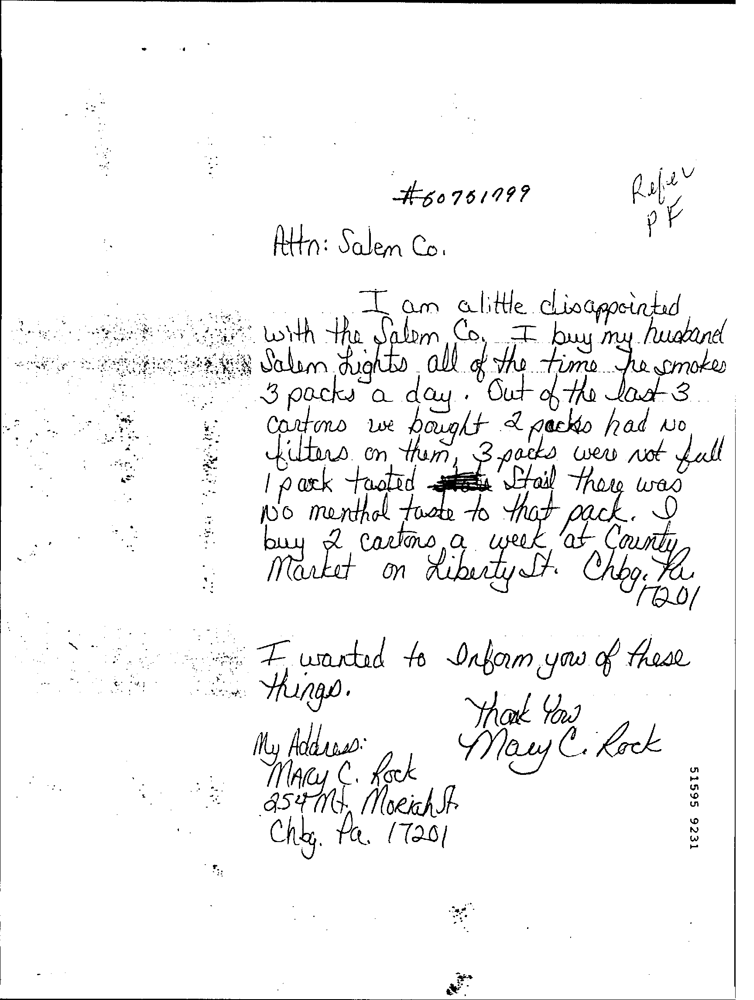 #60751799
Refer
PF
Attn: Salem Co.
I am a little disappointed
with the Salem Co. I buy my husband
Salem Lights all of the time he smokes
3 packs a day. Out of the last 3
cartons we bought 2 packs had no
filters on them, 3 packs were not full
1 pack tasted Stail there was
No menthol taste to that pack. I
buy 2 cartons a week at County
Market on Liberty St. Chbg. Pa
17201
I wanted to Inform you of these
things.
Thank You
Mary C. Rock
My Address:
MARY C. Rock
254 Mt. Moriah St.
Chbg. Pa. 17201
51595 9231